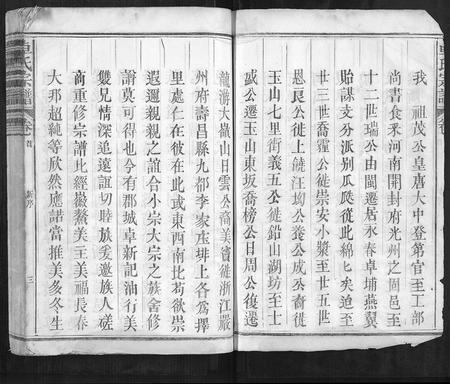 我 祖茂公皇唐大中登第官至工部
尚書食釆河南開封府光州之固邑至
十二世瑞公由閩遷居永春卓埔燕翼
貽謀支分派別瓜瓞從此綿匕矣迨至
廿三世喬霍公徙崇安小漿至廿五世
恩良公徙上饒汪坳公養公成公喬從
玉山七里街義五公徙鉛山湖坊至士
誠公遷玉山東坂喬榜公日周公復遷
龍游大嶽山日雲公喬美賓徙浙江嚴
州府壽昌縣九都李家庄垾上各爲擇
里處仁在彼在此或東西南北苟欲崇
遐邇親親之誼合小宗大宗之族會修
譜莫可得也今有郡城卓新記油行美
雙兄情深追遠誼切睦族爰邀族人磋
商重修宗譜此經徽鰲美王美福長春
大邦超純等欣然應諾當推美多冬生
卓氏宗譜
卷首
新序
三